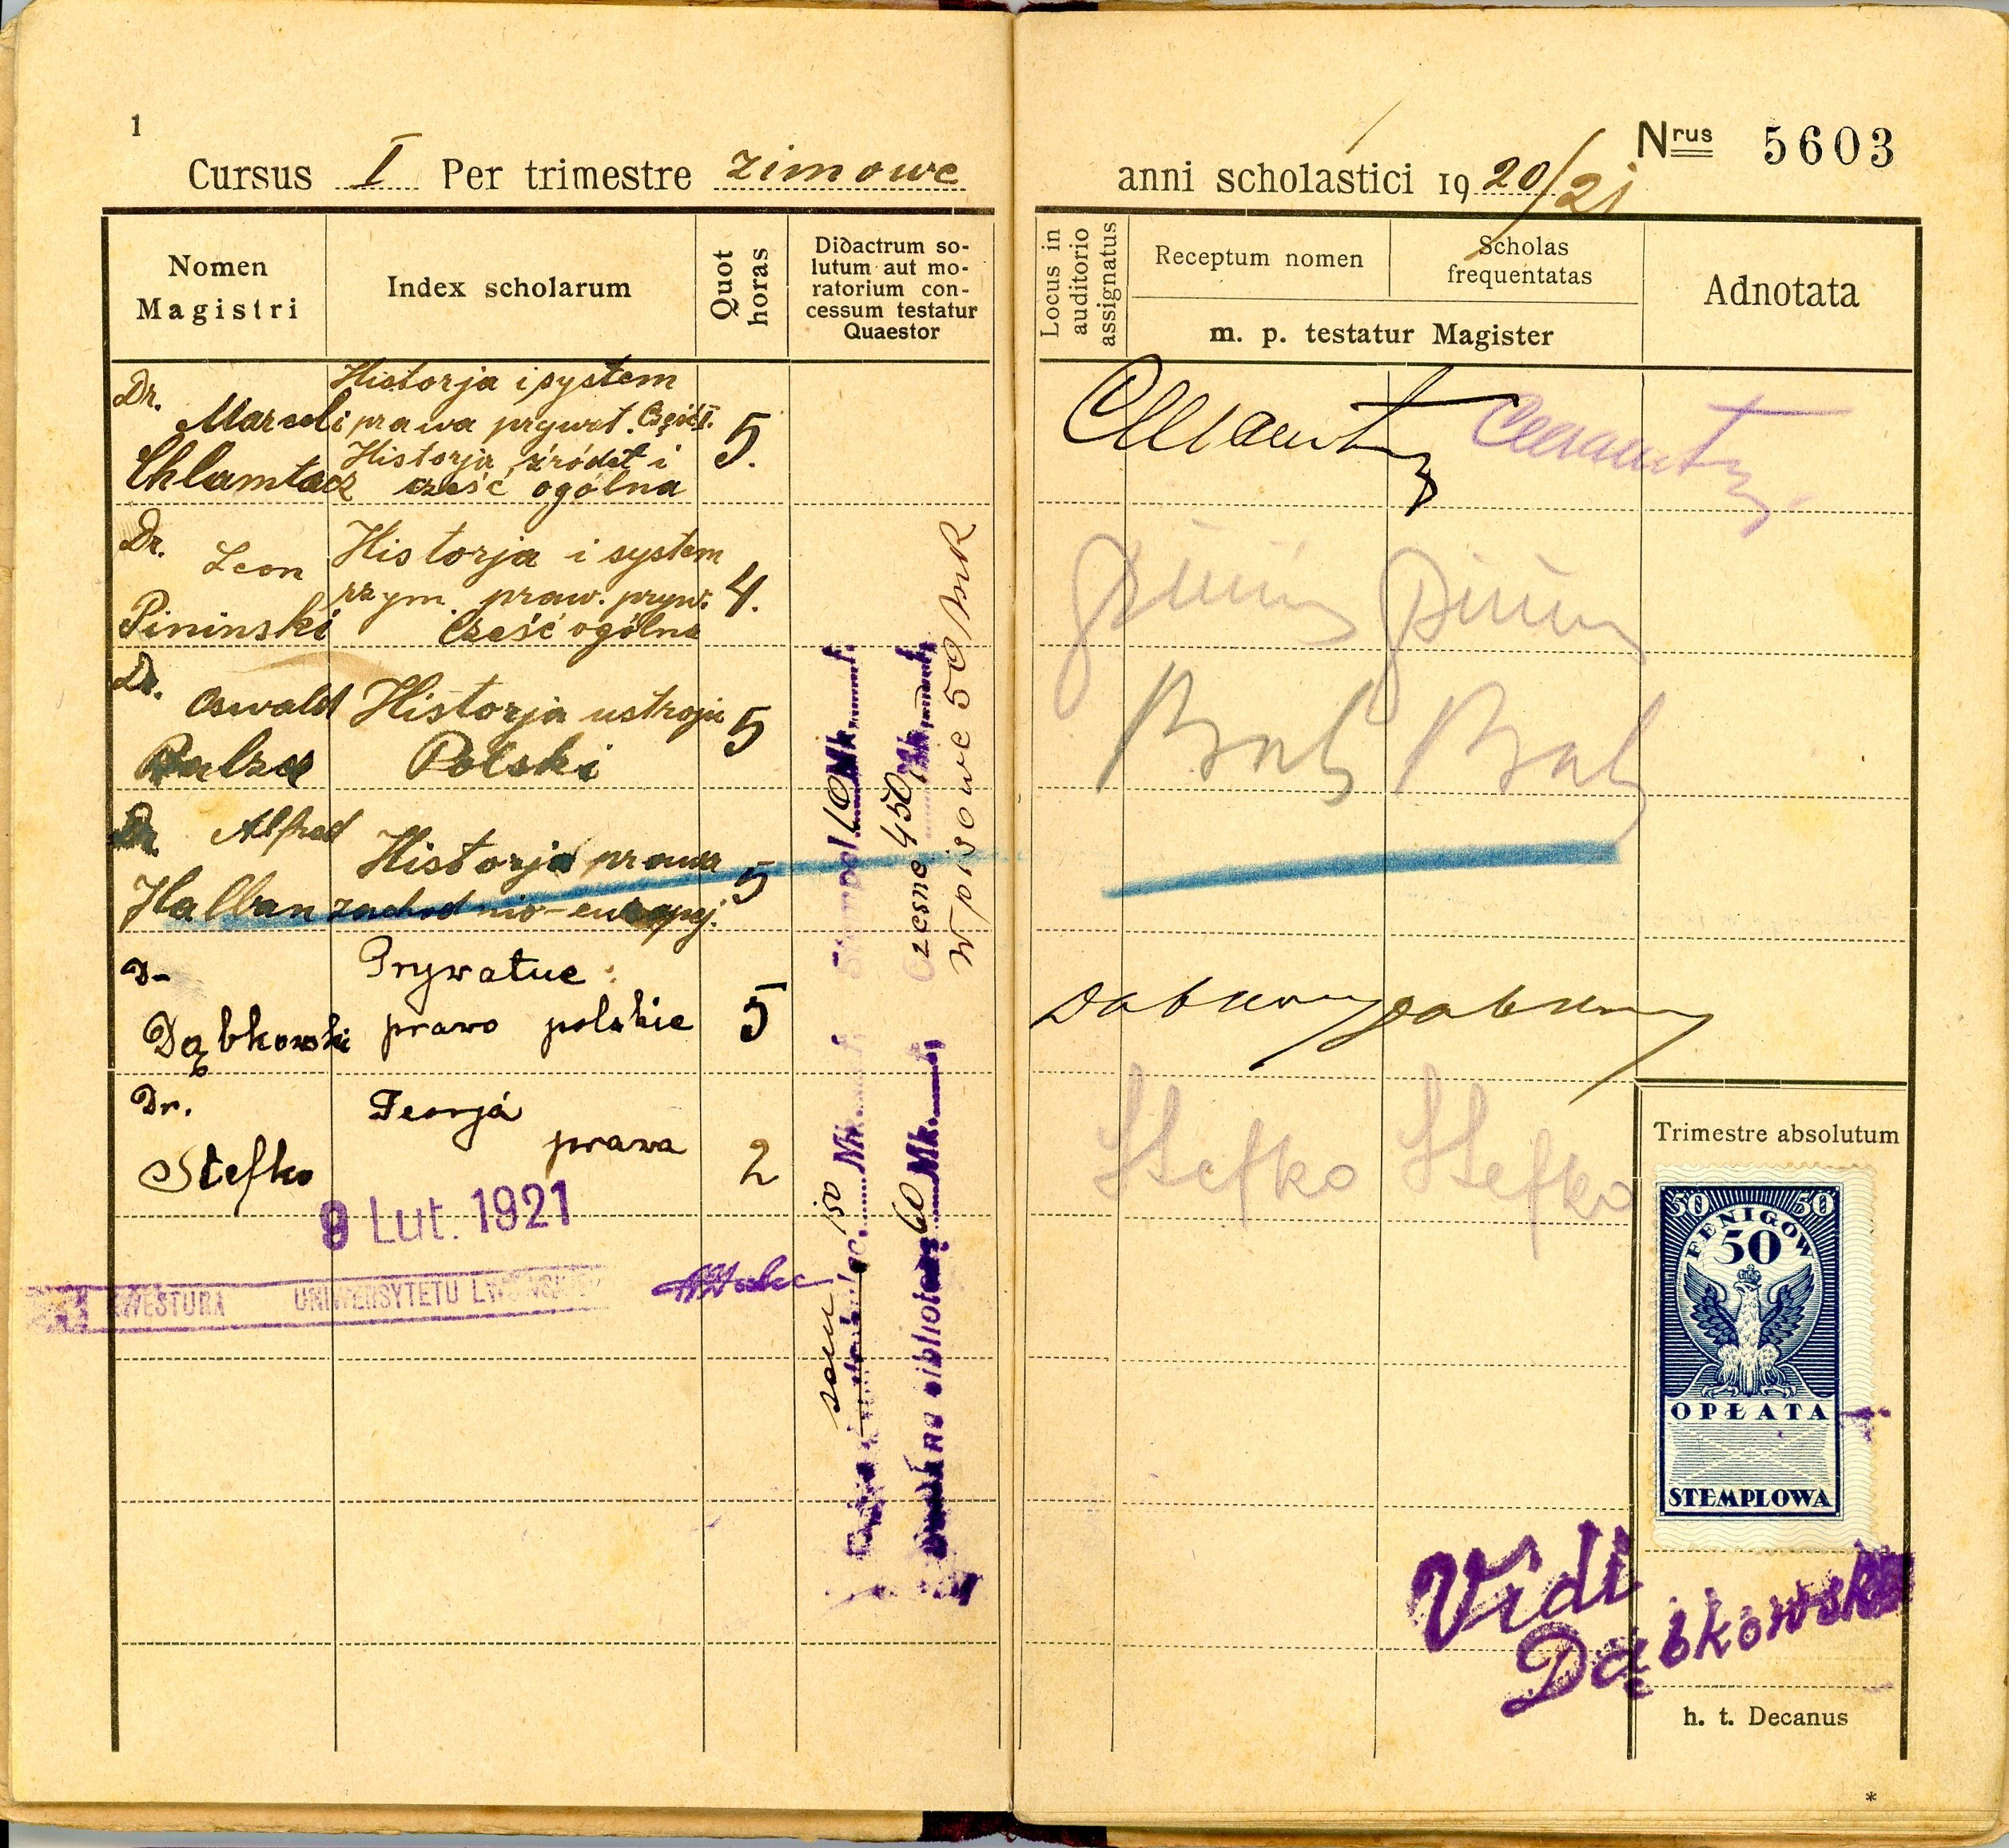 1
Cursus I Per trimestre zimowe
Nomen Magistri
Index scholarum
Quot horas
Didactrum so-
lutum aut mo-
ratorium con-
cessum testatur
Quaestor
Dr. Marceli Chlamtacz
Historja i system
prawa prywat. Część I.
Historja źródeł i
cześć ogólna
5.
Dr. Leon Pininski
Historja i system
rzym. praw. pryw.
Cześć ogólna
4.
Dr. Oswald Balzer
Historja ustroju
Polski
5
Dr. Alfred Halban
Historja prawa
zachodnio-europej.
5
Dr Dąbkowski
Prywatne
prawo polskie
5
Dr. Stefko
Teorja
prawa
2
9 Lut. 1921
KWESTURA UNIWERSYTETU LWOWSKIEGO
Stempel 10 Mk.
Czesne 450 Mk.
Wpisowe 50 MK
50 Mk.
bibliotekę 60 Mk.
Nrus 5603
anni scholastici 1920/21
Locus in
auditorio
assignatus
Receptum nomen
Scholas
frequentatas
m. p. testatur Magister
Adnotata
Stefko Stefko
Trimestre absolutum
50 50
FENIGÓW
50
OPŁATA
STEMPLOWA
Vidi
Dąbkowski
h. t. Decanus
*